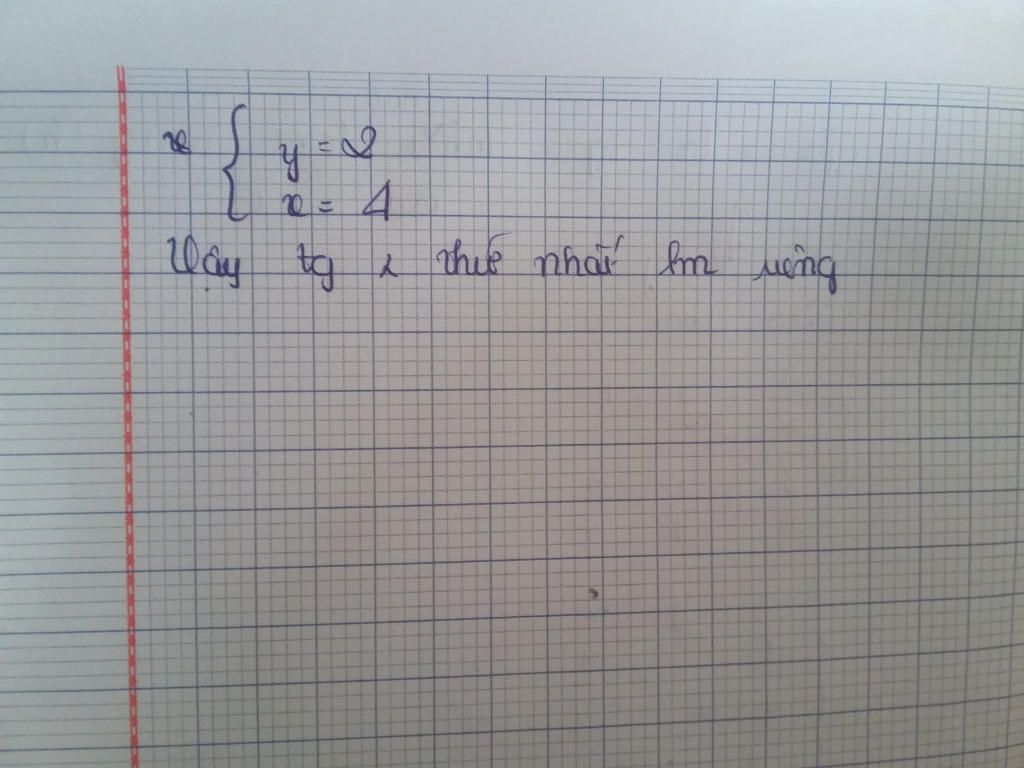 x { y = 2
x = 4
Vậy tg 2 thứ nhất lm riêng